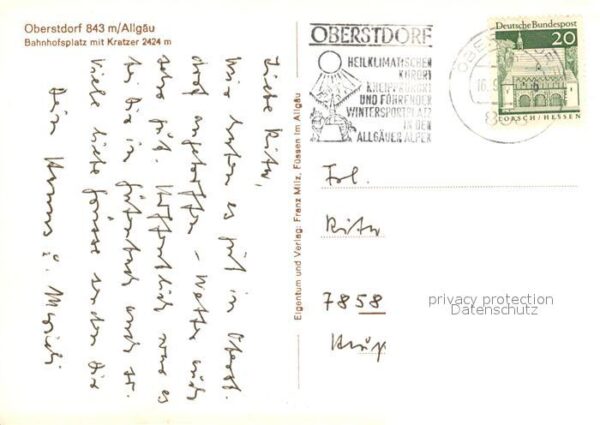 Oberstdorf 843 m/Allgäu
Bahnhofsplatz mit Kratzer 2424 m
Liebe Rita,
Wir haben es gut in Oberst-
dorf angetroffen – Wetter auch
sehr gut. Hoffentlich war es
bei Dir in auch so.
Viele liebe Grüsse senden Dir
Dein Hannes u.
Eigentum und Verlag: Franz Milz, Füssen im Allgäu
OBERSTDORF
HEILKLIMATISCHER
KURORT
KNEIPPKURORT
UND FÜHRENDER
WINTERSPORTPLATZ
IN DEN
ALLGÄUER ALPEN
Deutsche Bundespost
20
LORSCH/HESSEN
Frl.
Rita
7858
privacy protection
Datenschutz